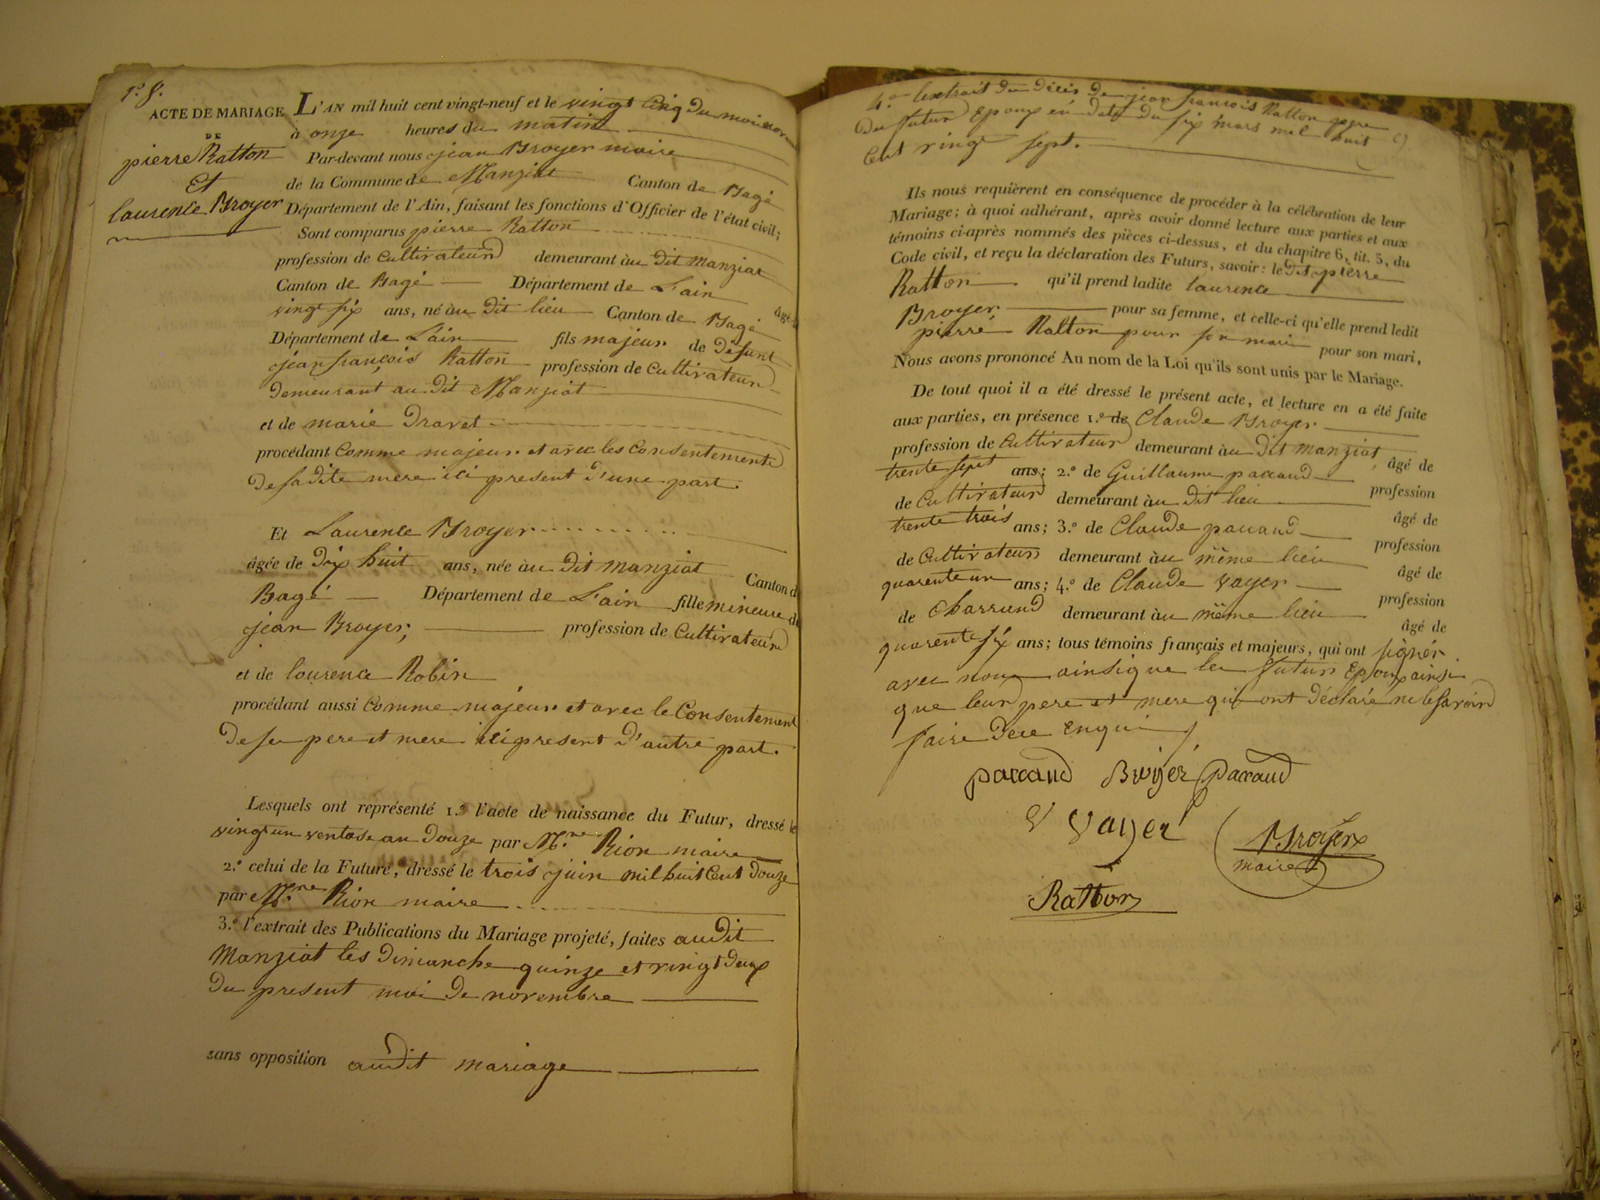 ACTE DE MARIAGE
DE
pierre Ratton
Et
laurence Broyer
L'AN mil huit cent vingt-neuf et le vingt Cinq du mois
à onze heures du matin
Par-devant nous jean Broyer maire
de la Commune de Manziat Canton de Bagé
Département de l'Ain, faisant les fonctions d'Officier de l'état civil;
Sont comparus pierre Ratton
profession de Cultivateur demeurant àu dit Manziat
Canton de Bagé Département de L'ain âgé
vingt six ans, né àu dit lieu Canton de Bagé
Département de L'ain fils majeur de Defunt
jean françois Ratton profession de Cultivateur
demeurant au dit Manziat
et de marie Dravet
procédant Comme majeur et avec les Consentement
de sa dite mere ici present d'une part.
Et Laurence Broyer
âgée de Dix huit ans, née àu dit manziat Canton d
Bagé Département de L'ain fille mineure de
jean Broyer; profession de Cultivateur
et de laurence Robin
procédant aussi Comme majeur et avec le Consentement
de ses pere et mere ici present d'autre part.
Lesquels ont représenté 1.º l'acte de naissance du Futur, dressé le
vingt un ventose an Douze par M. Rion maire
2.º celui de la Future, dressé le trois juin mil huit Cent Douze
par M. Rion maire
3.º l'extrait des Publications du Mariage projeté, faites audit
Manziat les dimanche quinze et vingt deux
du present moi de novembre
sans opposition audit mariage
4.º Extrait du décés de jean françois Ratton pere
du futur Epoux en date du six mars mil huit
Cent vingt sept.
Ils nous requièrent en conséquence de procéder à la célébration de leur
Mariage; à quoi adhérant, après avoir donné lecture aux parties et aux
témoins ci-après nommés des pièces ci-dessus, et du chapitre 6, tit. 5, du
Code civil, et reçu la déclaration des Futurs, savoir: ledit pierre
Ratton qu'il prend ladite laurence
Broyer pour sa femme, et celle-ci qu'elle prend ledit
pierre Ratton pour son mari pour son mari,
Nous avons prononcé Au nom de la Loi qu'ils sont unis par le Mariage.
De tout quoi il a été dressé le présent acte, et lecture en a été faite
aux parties, en présence 1.º de Claude Broyer
profession de Cultivateur demeurant àu dit manziat, âgé de
trente sept ans; 2.º de Guillaume paccaud profession
de Cultivateur demeurant àu dit lieu âgé de
trente trois ans; 3.º de Claude paccaud profession
de Cultivateur demeurant àu même lieu âgé de
quarente un ans; 4.º de Claude Vayer profession
de Charrund demeurant àu même lieu âgé de
quarente six ans; tous témoins français et majeurs, qui ont signér
avec nous ainsi que le futur Epoux ainsi
que leur pere et mere qui ont déclaré ne le savoir
faire de ce Enqui
paccaud Broyer paccaud
Vayer
Broyer
maire
Ratton